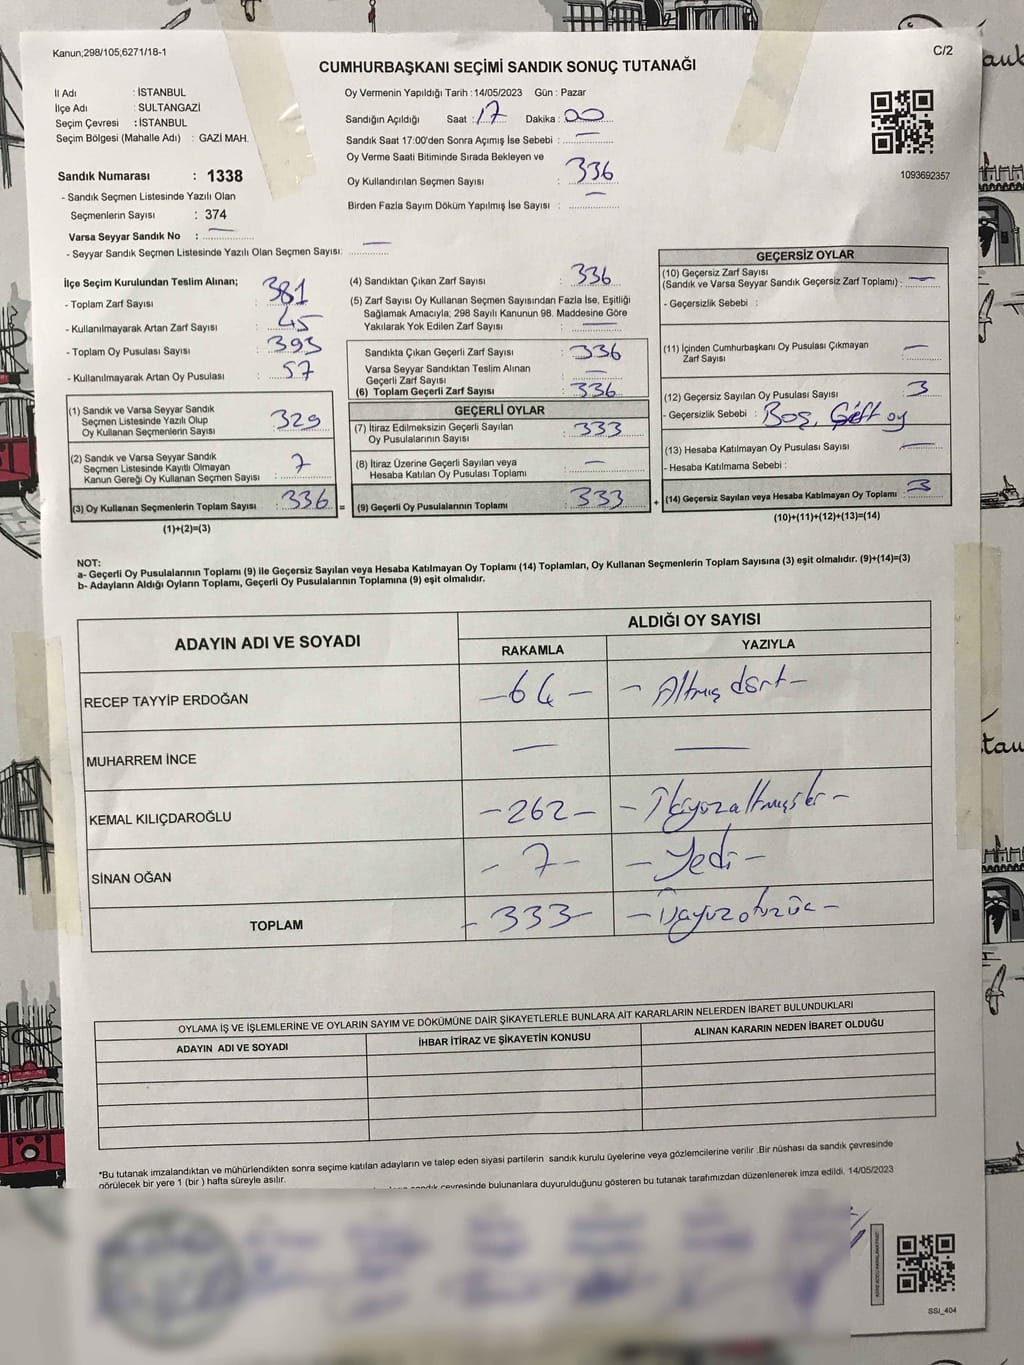 Kanun;298/105,6271/18-1
C/2
CUMHURBAŞKANI SEÇİMİ SANDIK SONUÇ TUTANAĞI
İl Adı : İSTANBUL
İlçe Adı : SULTANGAZİ
Seçim Çevresi : İSTANBUL
Seçim Bölgesi (Mahalle Adı) : GAZİ MAH.
Sandık Numarası : 1338
- Sandık Seçmen Listesinde Yazılı Olan
Seçmenlerin Sayısı : 374
Varsa Seyyar Sandık No : —
- Seyyar Sandık Seçmen Listesinde Yazılı Olan Seçmen Sayısı: —
Oy Vermenin Yapıldığı Tarih : 14/05/2023 Gün : Pazar
Sandığın Açıldığı Saat : 17 Dakika : 00
Sandık Saat 17:00'den Sonra Açımış İse Sebebi : —
Oy Verme Saati Bitiminde Sırada Bekleyen ve
Oy Kullandırılan Seçmen Sayısı : 336
Birden Fazla Sayım Döküm Yapılmış İse Sayısı : —
1093692357
İlçe Seçim Kurulundan Teslim Alınan;
- Toplam Zarf Sayısı : 381
- Kullanılmayarak Artan Zarf Sayısı : 45
- Toplam Oy Pusulası Sayısı : 393
- Kullanılmayarak Artan Oy Pusulası : 57
(1) Sandık ve Varsa Seyyar Sandık
Seçmen Listesinde Yazılı Olup
Oy Kullanan Seçmenlerin Sayısı : 329
(2) Sandık ve Varsa Seyyar Sandık
Seçmen Listesinde Kayıtlı Olmayan
Kanun Gereği Oy Kullanan Seçmen Sayısı : 7
(3) Oy Kullanan Seçmenlerin Toplam Sayısı : 336 =
(1)+(2)=(3)
(4) Sandıktan Çıkan Zarf Sayısı : 336
(5) Zarf Sayısı Oy Kullanan Seçmen Sayısından Fazla İse, Eşitliği
Sağlamak Amacıyla; 298 Sayılı Kanunun 98. Maddesine Göre
Yakılarak Yok Edilen Zarf Sayısı : —
Sandıkta Çıkan Geçerli Zarf Sayısı : 336
Varsa Seyyar Sandıktan Teslim Alınan
Geçerli Zarf Sayısı : —
(6) Toplam Geçerli Zarf Sayısı : 336
GEÇERLİ OYLAR
(7) İtiraz Edilmeksizin Geçerli Sayılan
Oy Pusulalarının Sayısı : 333
(8) İtiraz Üzerine Geçerli Sayılan veya
Hesaba Katılan Oy Pusulası Toplamı : —
(9) Geçerli Oy Pusulalarının Toplamı : 333 +
GEÇERSİZ OYLAR
(10) Geçersiz Zarf Sayısı
(Sandık ve Varsa Seyyar Sandık Geçersiz Zarf Toplamı) : —
- Geçersizlik Sebebi :
(11) İçinden Cumhurbaşkanı Oy Pusulası Çıkmayan
Zarf Sayısı : —
(12) Geçersiz Sayılan Oy Pusulası Sayısı : 3
- Geçersizlik Sebebi : Boş, Çift oy
(13) Hesaba Katılmayan Oy Pusulası Sayısı : —
- Hesaba Katılmama Sebebi :
(14) Geçersiz Sayılan veya Hesaba Katılmayan Oy Toplamı : 3
(10)+(11)+(12)+(13)=(14)
NOT:
a- Geçerli Oy Pusulalarının Toplamı (9) ile Geçersiz Sayılan veya Hesaba Katılmayan Oy Toplamı (14) Toplamları, Oy Kullanan Seçmenlerin Toplam Sayısına (3) eşit olmalıdır. (9)+(14)=(3)
b- Adayların Aldığı Oyların Toplamı, Geçerli Oy Pusulalarının Toplamına (9) eşit olmalıdır.
ADAYIN ADI VE SOYADI ALDIĞI OY SAYISI
RAKAMLA YAZIYLA
RECEP TAYYİP ERDOĞAN – 64 – – Altmış dört –
MUHARREM İNCE — —
KEMAL KILIÇDAROĞLU – 262 – – İkiyüzaltmışiki –
SİNAN OĞAN – 7 – – Yedi –
TOPLAM – 333 – – Üçyüzotuzüç –
OYLAMA İŞ VE İŞLEMLERİNE VE OYLARIN SAYIM VE DÖKÜMÜNE DAİR ŞİKAYETLERLE BUNLARA AİT KARARLARIN NELERDEN İBARET BULUNDUKLARI
ADAYIN ADI VE SOYADI İHBAR İTİRAZ VE ŞİKAYETİN KONUSU ALINAN KARARIN NEDEN İBARET OLDUĞU
*Bu tutanak imzalandıktan ve mühürlendikten sonra seçime katılan adayların ve talep eden siyasi partilerin sandık kurulu üyelerine veya gözlemcilerine verilir .Bir nüshası da sandık çevresinde
görülecek bir yere 1 (bir ) hafta süreyle asılır.
sandık çevresinde bulunanlara duyurulduğunu gösteren bu tutanak tarafımızdan düzenlenerek imza edildi. 14/05/2023
SSI_404